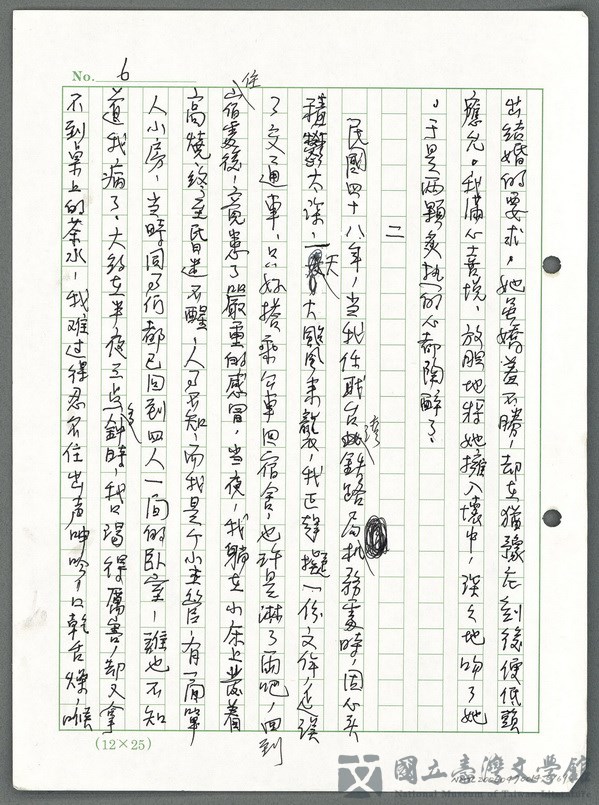 No. 6
出結婚的要求，她雖嬌羞不勝，却在猶豫片刻後便低頭
應允。我滿心喜悅，放胆地將她擁入懷中，深深地吻了她
。于是兩顆炙热的心都陶醉了。
二
民國四十八年，當我任职台灣鉄路局机務處時，因心头
積鬱太深，一天大颱風來襲，我正趕擬一份文件，延誤
了交通車，只好搭乘公車回宿舍，也許是淋了雨吧，回到
住宿處後，竟患了嚴重的感冒，当夜，我躺在小床上發着
高燒，終至昏迷不醒，人事不知，而我是个小主管，有一間單
人小房，当時同事們都已回到四人一間的卧室，誰也不知
道我病了。大約在半夜三点多鐘時，我口渴得厲害，却又拿
不到桌上的茶水，我难过得忍不住出声呻吟，口乾舌燥，喉
(12×25)
國立臺灣文學館
National Museum of Taiwan Literature